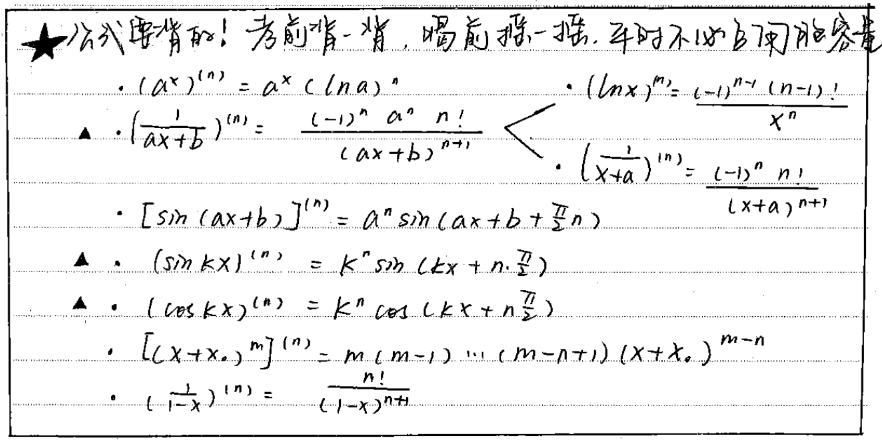 ★公式要背的！考前背一背，喝前摇一摇，平时不必占用脑容量
· (a^x)^(n) = a^x (ln a)^n
· (ln x)^(n) = (-1)^(n-1) (n-1)! / x^n
▲ · (1/(ax+b))^(n) = (-1)^n a^n n! / (ax+b)^(n+1)
· (1/(x+a))^(n) = (-1)^n n! / (x+a)^(n+1)
· [sin(ax+b)]^(n) = a^n sin(ax+b+π/2 n)
▲ · (sin kx)^(n) = k^n sin(kx+n·π/2)
▲ · (cos kx)^(n) = k^n cos(kx+nπ/2)
· [(x+x₀)^m]^(n) = m(m-1)···(m-n+1)(x+x₀)^(m-n)
· (1/(1-x))^(n) = n! / (1-x)^(n+1)